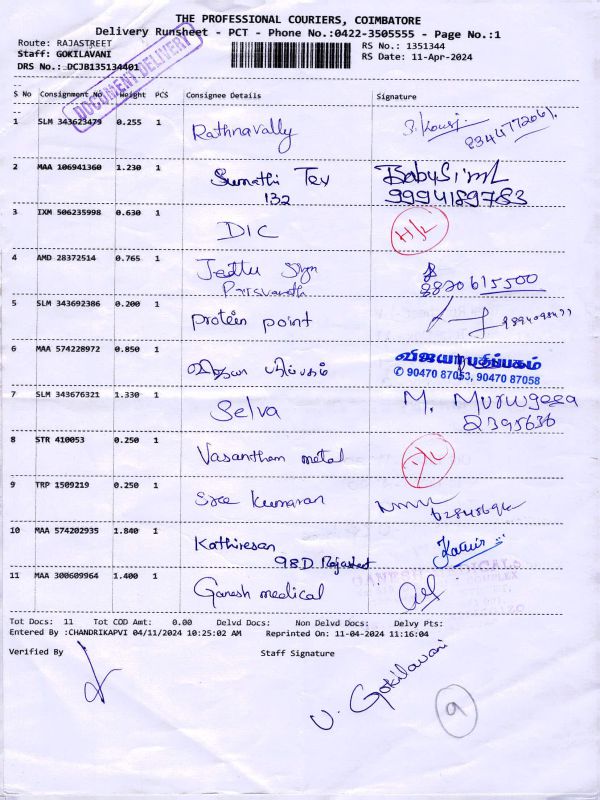 THE PROFESSIONAL COURIERS, COIMBATORE
Delivery Runsheet - PCT - Phone No.:0422-3505555 - Page No.:1
Route: RAJASTREET
RS No.: 1351344
Staff: GOKILAVANI
RS Date: 11-Apr-2024
DRS No.: DCJB135134401
DOCUMENT DELIVERY
S No Consignment No Weight PCS Consignee Details Signature
1 SLM 343623479 0.255 1 Rathnavally
2 MAA 106941360 1.230 1 Sumathi Tex
132 9994189783
3 IXM 506235998 0.630 1 DIC
4 AMD 28372514 0.765 1 Jeettu
8820615500
5 SLM 343692386 0.200 1 protein point
6 MAA 574228972 0.850 1 விஜயா பதிப்பகம்
✆ 90470 87053, 90470 87058
7 SLM 343676321 1.330 1 Selva M. Murugesa
2395636
8 STR 410053 0.250 1 Vasantham metal
9 TRP 1509219 0.250 1 Sree Kumaran
10 MAA 574202935 1.840 1 Kathiresan
98D Rajastreet
11 MAA 300609964 1.400 1 Ganesh medical
Tot Docs: 11 Tot COD Amt: 0.00 Delvd Docs: Non Delvd Docs: Delvy Pts:
Entered By :CHANDRIKAPVI 04/11/2024 10:25:02 AM Reprinted On: 11-04-2024 11:16:04
Verified By Staff Signature
U. Gokilavani
9